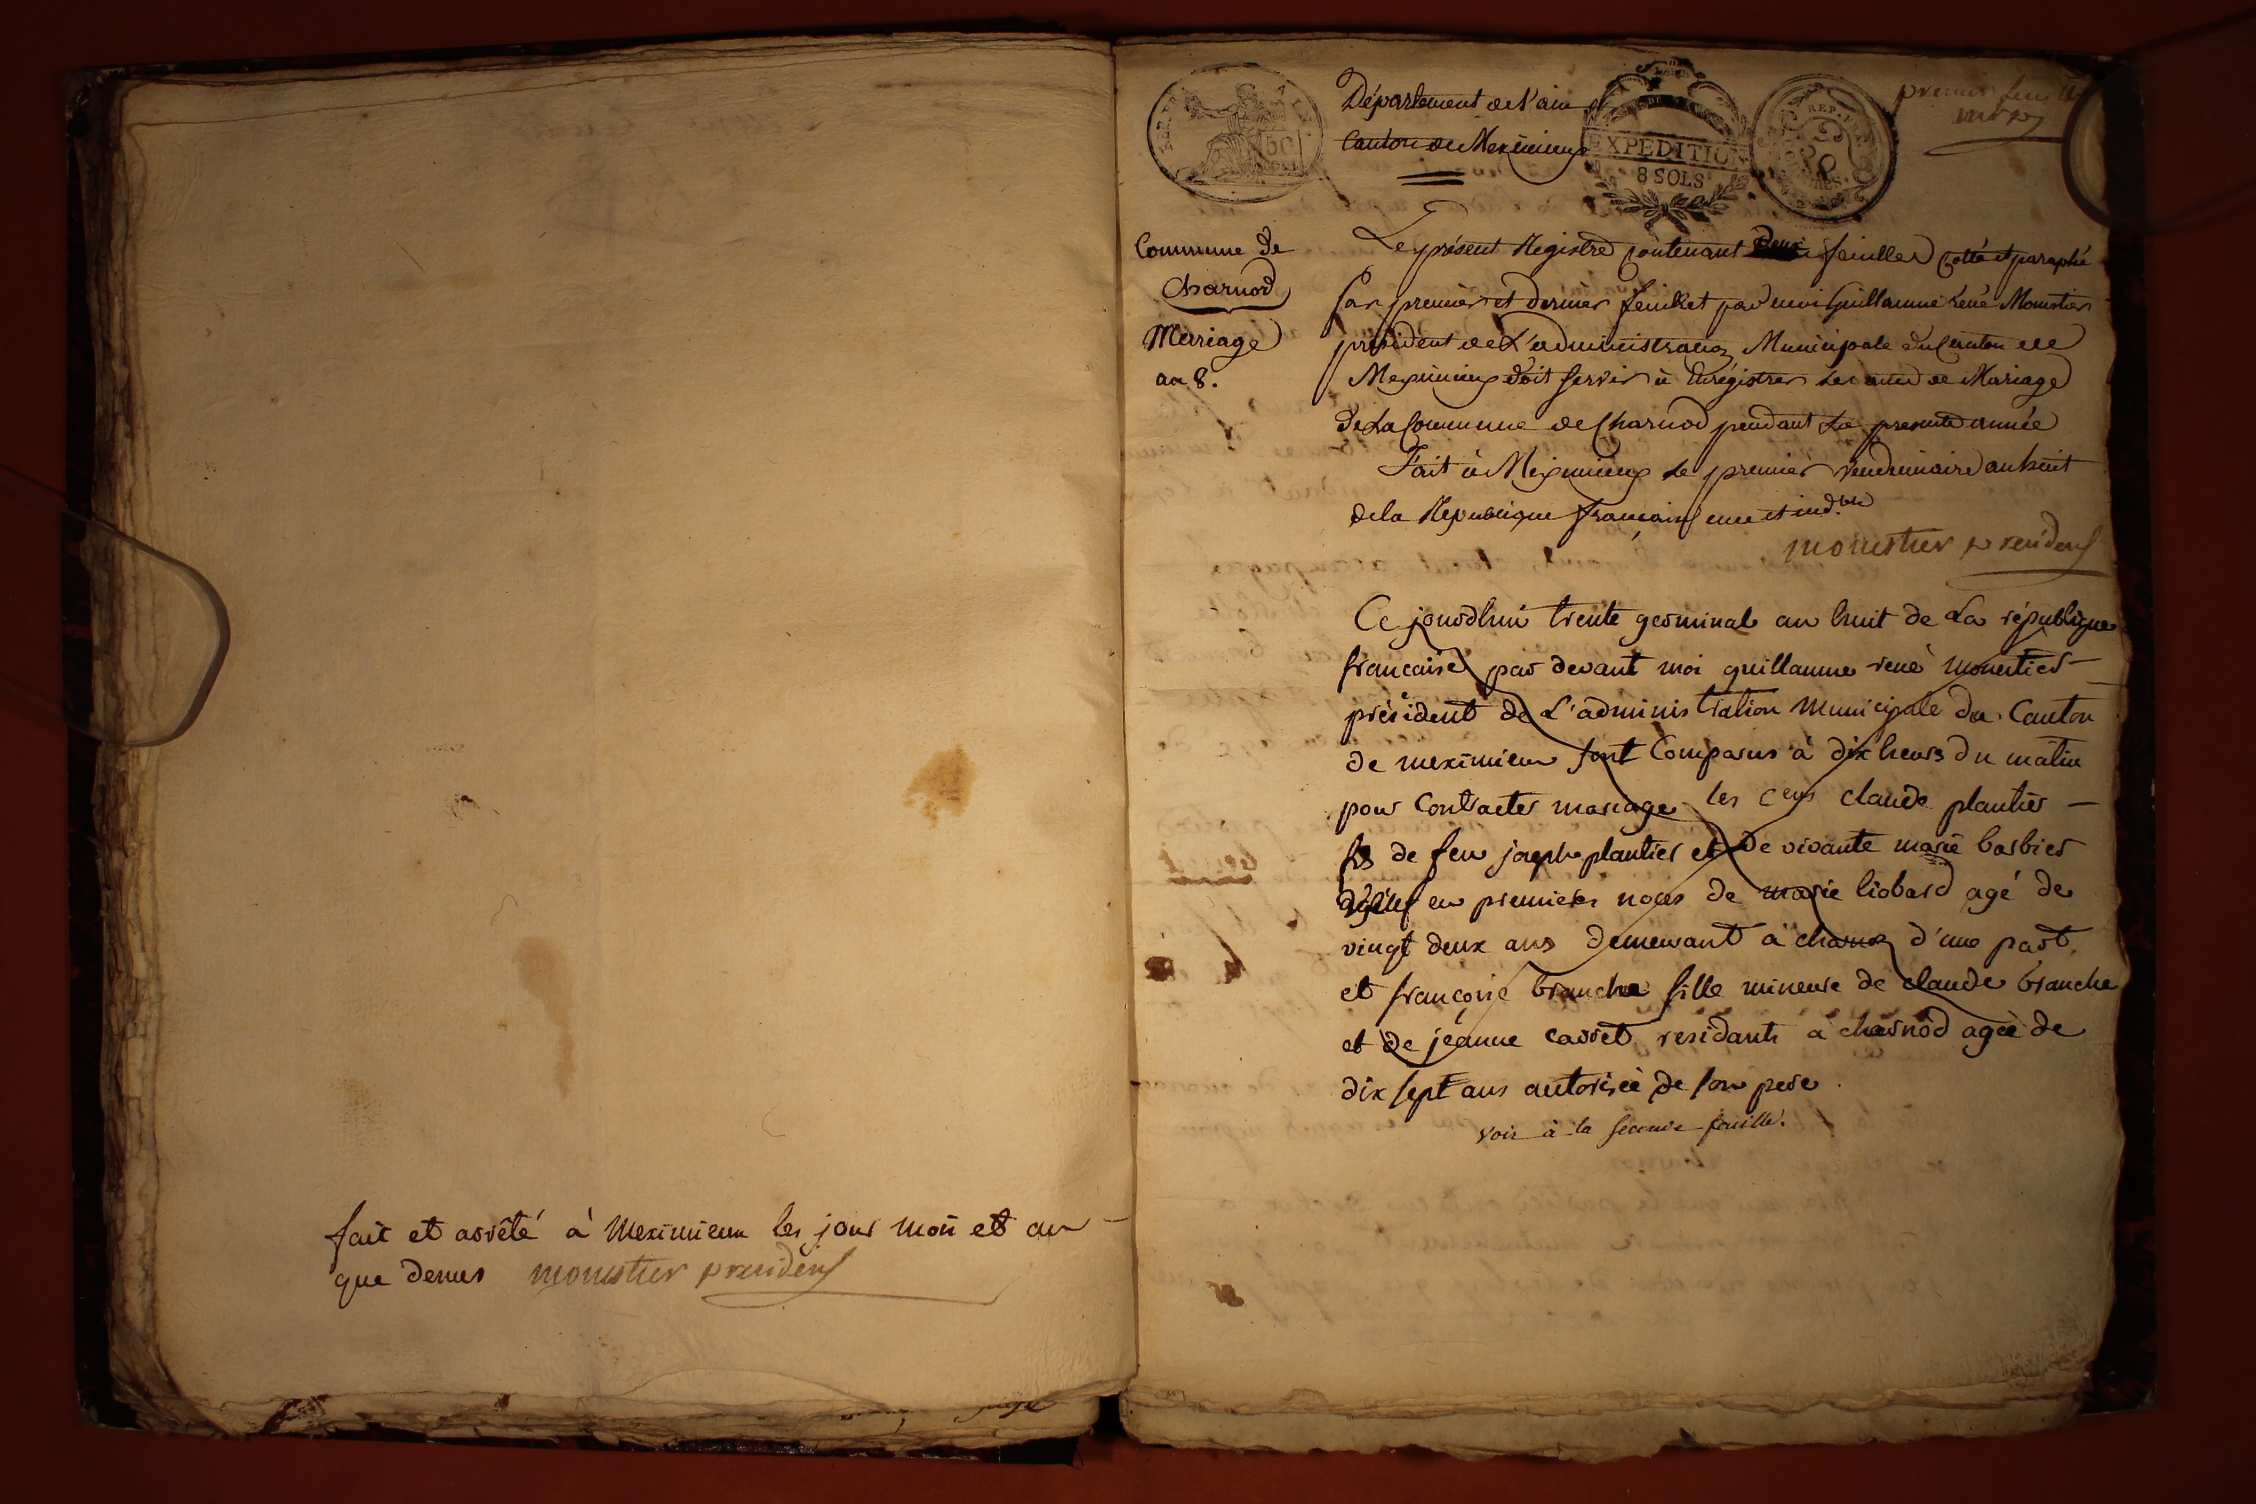 fait et arrêté à Meximieux les jour mois et an
que denus monestier president
Département de l'ain
Canton de Meximieux
EXPEDITION
8 SOLS
REP. FRA
premier feuillet
Commune de
Charnod
Mariage
an 8.
Le présent Registre contenant deux feuilles cotté et paraphé
par premier et dernier feuillet par moi Guillaume René Monestier
président de L'administration Municipale du Canton de
Meximieux doit servir à Enregistrer les actes de Mariage
de la Commune de Charnod pendant la presente année
Fait à Meximieux le premier vendemiaire an huit
de la Republique francaise une et indble
monestier president
Ce jourdhui trente germinal an huit de la république
francaise par devant moi guillaume rené monestier
président de L'administration Municipale du Canton
de meximieux sont Comparus à dix heurs du matin
pour Contracter mariage les cens claude plantier
fils de feu joseph plantier et de vivante marie barbier
en premieres noces de marie liobard agé de
vingt deux ans demeurant à charnoz d'une part
et francoise branche fille mineure de claude branche
et de jeanne carret residants à charnod agée de
dix sept ans autorisée de son pere
voir à la seconde feuille.